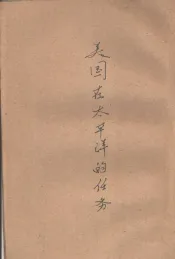 美国在太平洋的任务